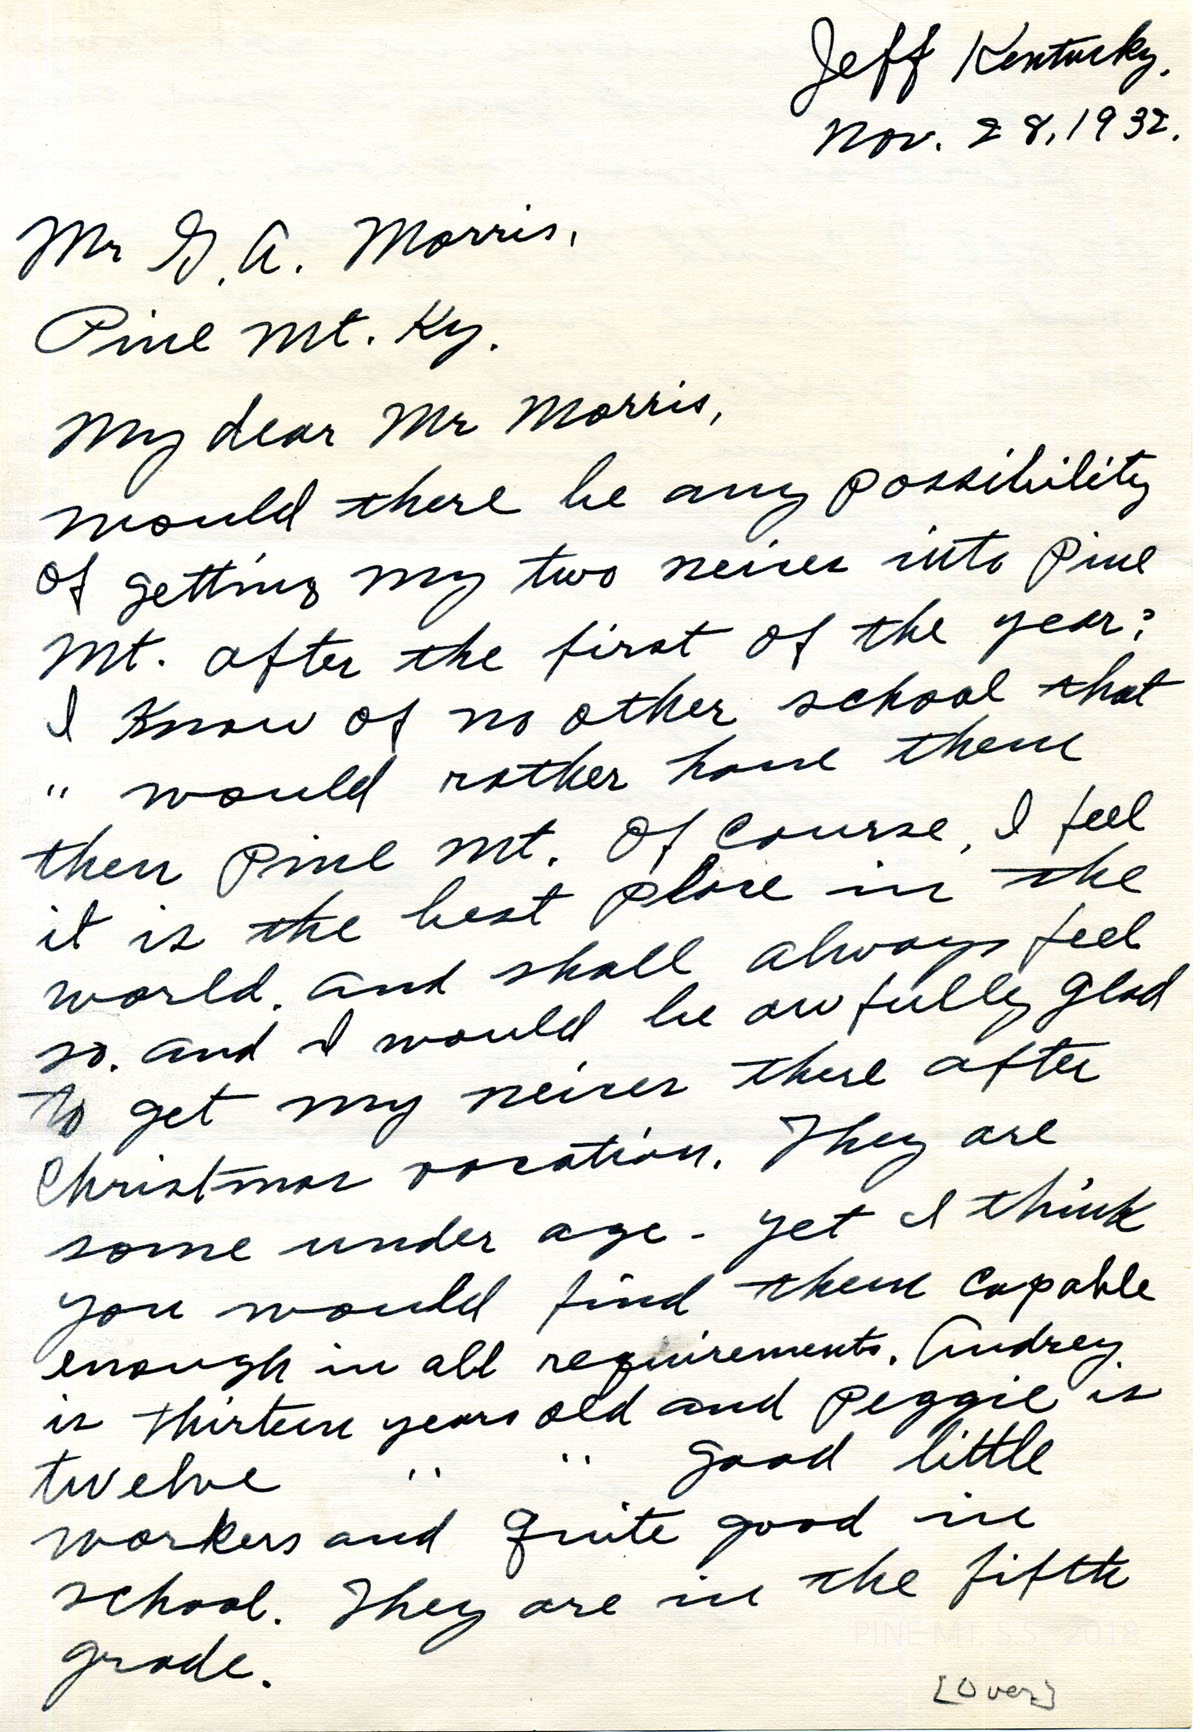 Jeff Kentucky.
Nov. 28, 1932.
Mr G. A. Morris,
Pine Mt. Ky.
My dear Mr Morris,
would there be any possibility
of getting my two neices into Pine
Mt. after the first of the year?
I know of no other school that
" would rather have them
then Pine Mt. Of course, I feel
it is the best place in the
world. and shall always feel
so. and I would be awfully glad
to get my neices there after
Christmas vacation. They are
some under age - yet I think
you would find them capable
enough in all requirements. Audrey
is thirteen years old and Peggie is
twelve " " good little
workers and quite good in
school. They are in the fifth
grade.
PINE MT. S.S. 2018
[Over]